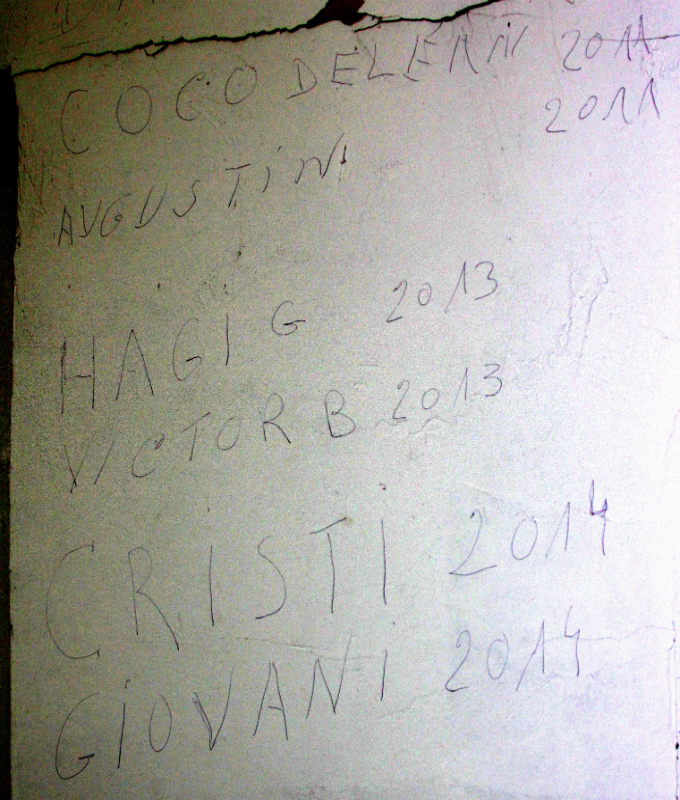 COCO DELEANU 2011
2011
AUGUSTIN
HAGI G 2013
VICTOR B 2013
CRISTI 2014
GIOVANI 2014